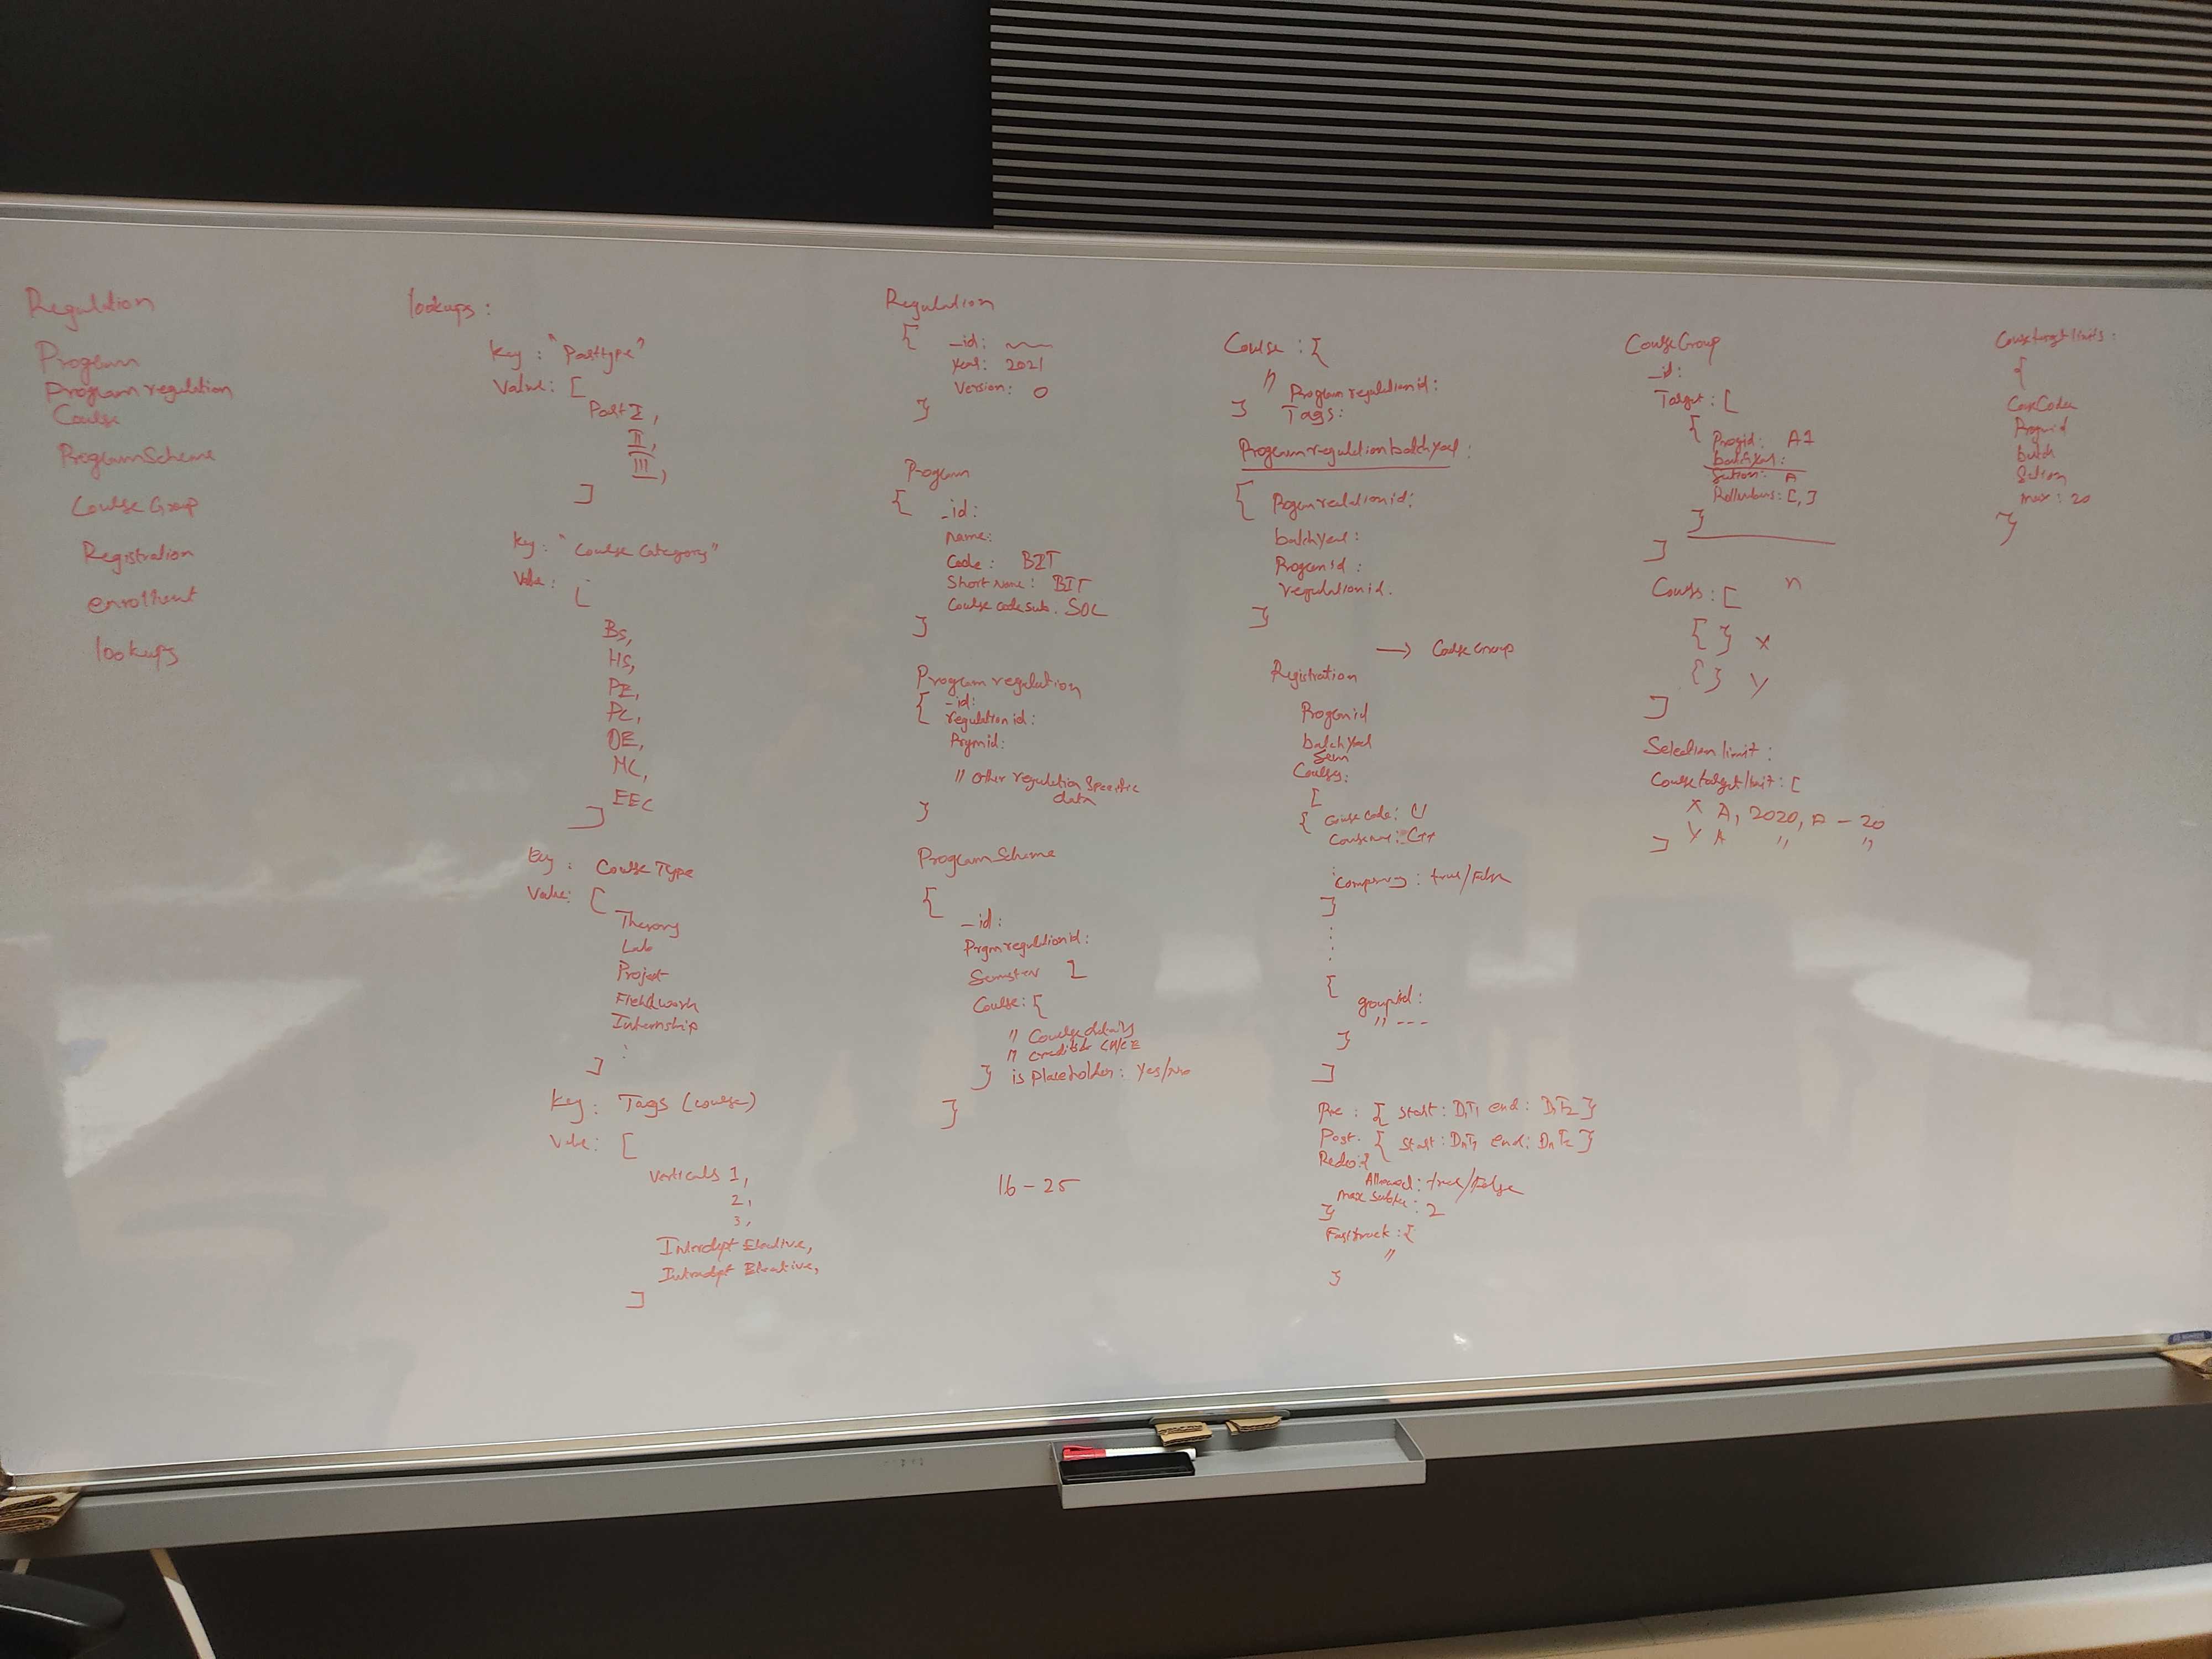 Regulation
Program
Program regulation
Course
Program Scheme
Course Group
Registration
enrollment
lookups
lookups :
Key : "Parttype"
Value : [
Part I,
II,
III,
]
Key : "Course Category"
Value : [
BS,
HS,
PE,
PC,
OE,
MC,
EEC
]
Key : Course Type
Value : [
Theory
Lab
Project
Fieldwork
Internship
:
]
Key : Tags (course)
Value : [
Verticals 1,
2,
3,
Interdept Elective,
Intradept Elective,
]
Regulation
{ _id :
Year : 2021
Version : 0
}
Program
{ _id :
name :
Code : BIT
Short Name : BIT
Course code sub. SOC
}
Program regulation
{ _id :
regulation id :
Prgmid :
// other regulation specific
data
}
Program Scheme
{
_id :
Prgm regulation id :
Semster 1
Course : {
// Course details
//
} is placeholder : Yes/No
}
16 - 25
Course : {
// Program regulation id :
} Tags :
Program regulation batch year :
{ Program regulation id :
batch year :
Program id :
regulation id.
}
→ Course Group
Registration
Program id
batch year
Sem
Courses :
[
{ Course code : C1
Course name : C++
: true/false
}
:
:
{
group id :
// ---
}
]
Pre : { start : D1T1 end : D1T2 }
Post. { start : DnT1 end : DnT2 }
Redo : {
Allowed : true/false
max : 2
}
Fasttrack : {
//
}
Course Group
_id :
Target : [
{ Progid : A1
batch year :
Section : A
Rollnumbers : [ , ]
}
]
Courses : [ n
{ } X
{ } Y
]
Selection limit :
Course target limit : [
X A, 2020, A - 20
Y A " "
]
Course target limits :
{
Course Code
Prgmid
batch
Section
max : 20
}